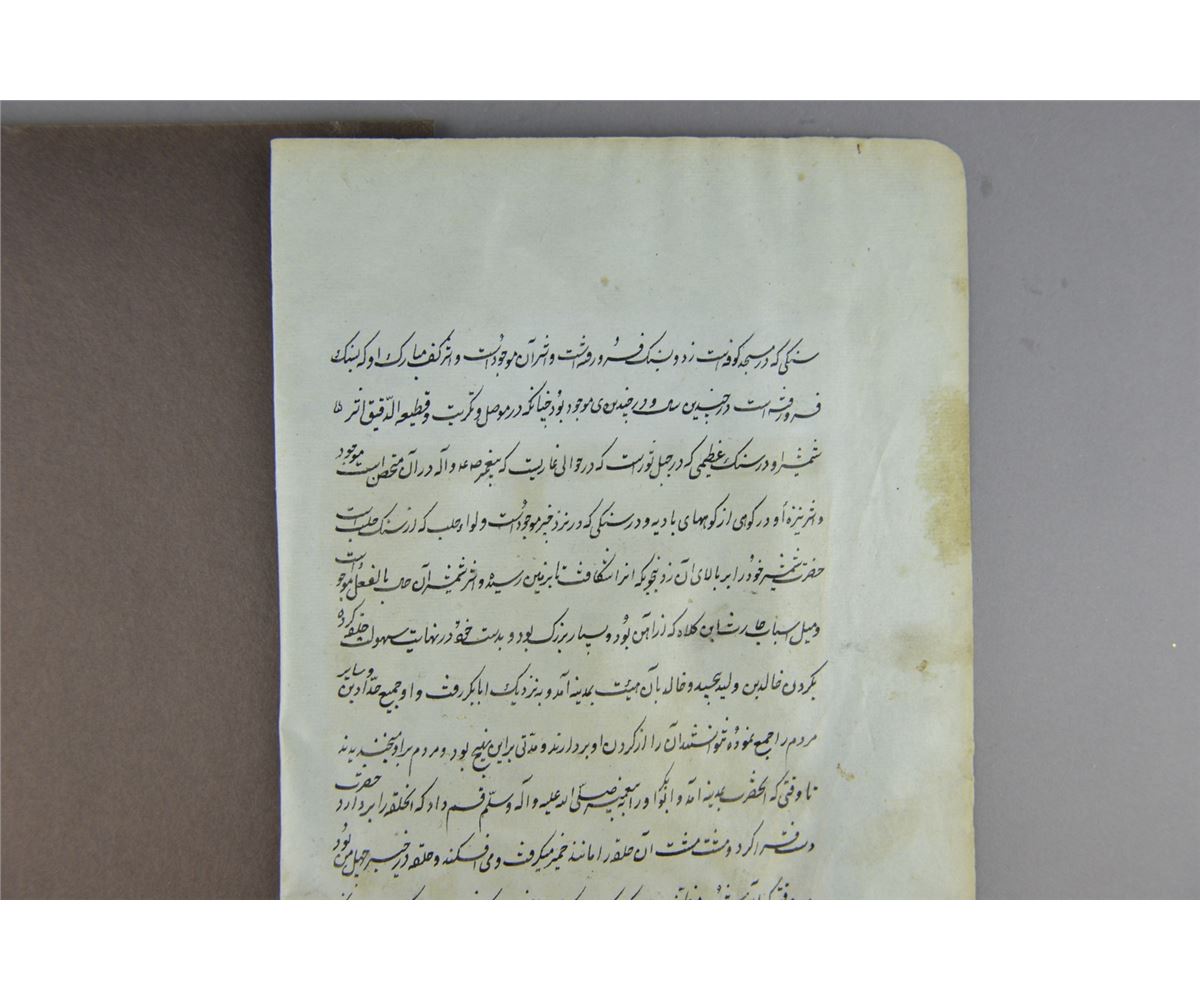 سنکی که در مسجد کوفه است زد و بسنک فرو رفت و اثر آن موجود است و اثر کف مبارک او که بسنک
فرو رفته است در چندین موجود بود چنانکه در موصل و تکریت و قطیعه الدقیق اثر
شمشیر او در سنک عظیمی که در جبل ثور است که در حوالی غاریست که پیغمبر و آله در آن متحصن است موجود
و اثر نیزه او در کوهی از کوههای بادیه و در سنکی که در نزد خیبر موجود است که از سنک است
حضرت شمشیر خود را بر بالای آن زد بنحویکه انرا شکافت تا بزمین رسید و اثر شمشیر آن بالفعل موجود است
و میل اسیاب این کلاه که از آهن بود و بسیار بزرک بود و بدست خود در نهایت سهولت حلقه کرده
بکردن خالد بن ولید پیچید و خالد بآن هیئت بمدینه آمد و به نزدیک ابابکر رفت و او جمیع حدادین و سایر
مردم را جمع نموده نتوانستند آن را از کردن او بردارند و مدتی بر این نهج بود و مردم بر او میخندیدند
تا وقتی که آنحضرت بمدینه آمد و ابوبکر او را به پیغمبر صلی الله علیه و آله وسلم قسم داد که آنحلقه را بردارد حضرت
دست فرا کرد و مشت مشت آن حلقه را مانند خمیر میکرفت و می افکند و حلقه در خیبر چهل من بود